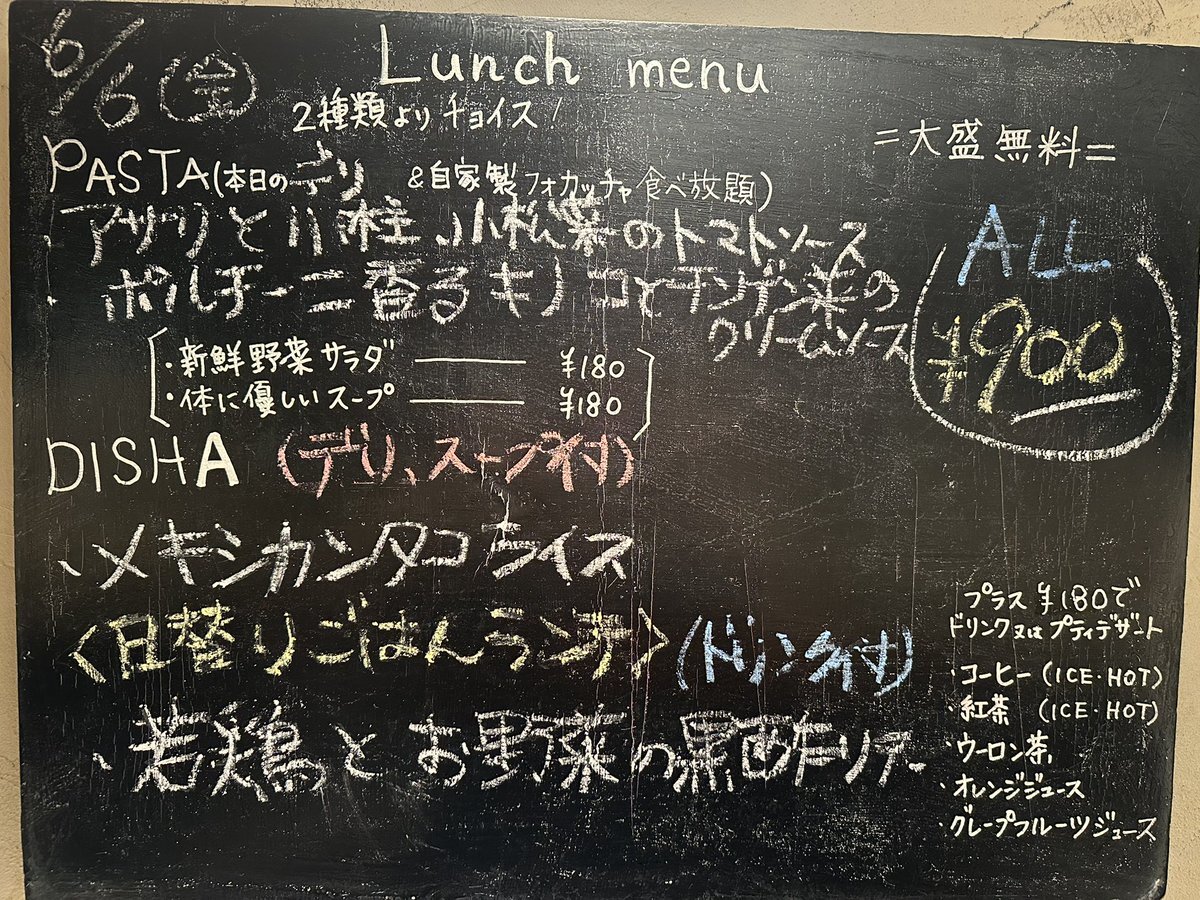 6/6(金)
Lunch menu
2種類よりチョイス!
=大盛無料=
PASTA(本日のデリ &自家製フォカッチャ食べ放題)
・アサリと小柱、小松菜のトマトソース
・ポルチーニ香るキノコとチンゲン菜の
クリームソース
ALL
¥900
・新鮮野菜サラダ ¥180
・体に優しいスープ ¥180
DISHA (デリ、スープ付)
・メキシカンタコライス
<日替りごはんランチ>(ドリンク付)
・若鶏とお野菜の黒酢ソテー
プラス¥180で
ドリンク又はプティデザート
・コーヒー(ICE・HOT)
・紅茶 (ICE・HOT)
・ウーロン茶
・オレンジジュース
・グレープフルーツジュース